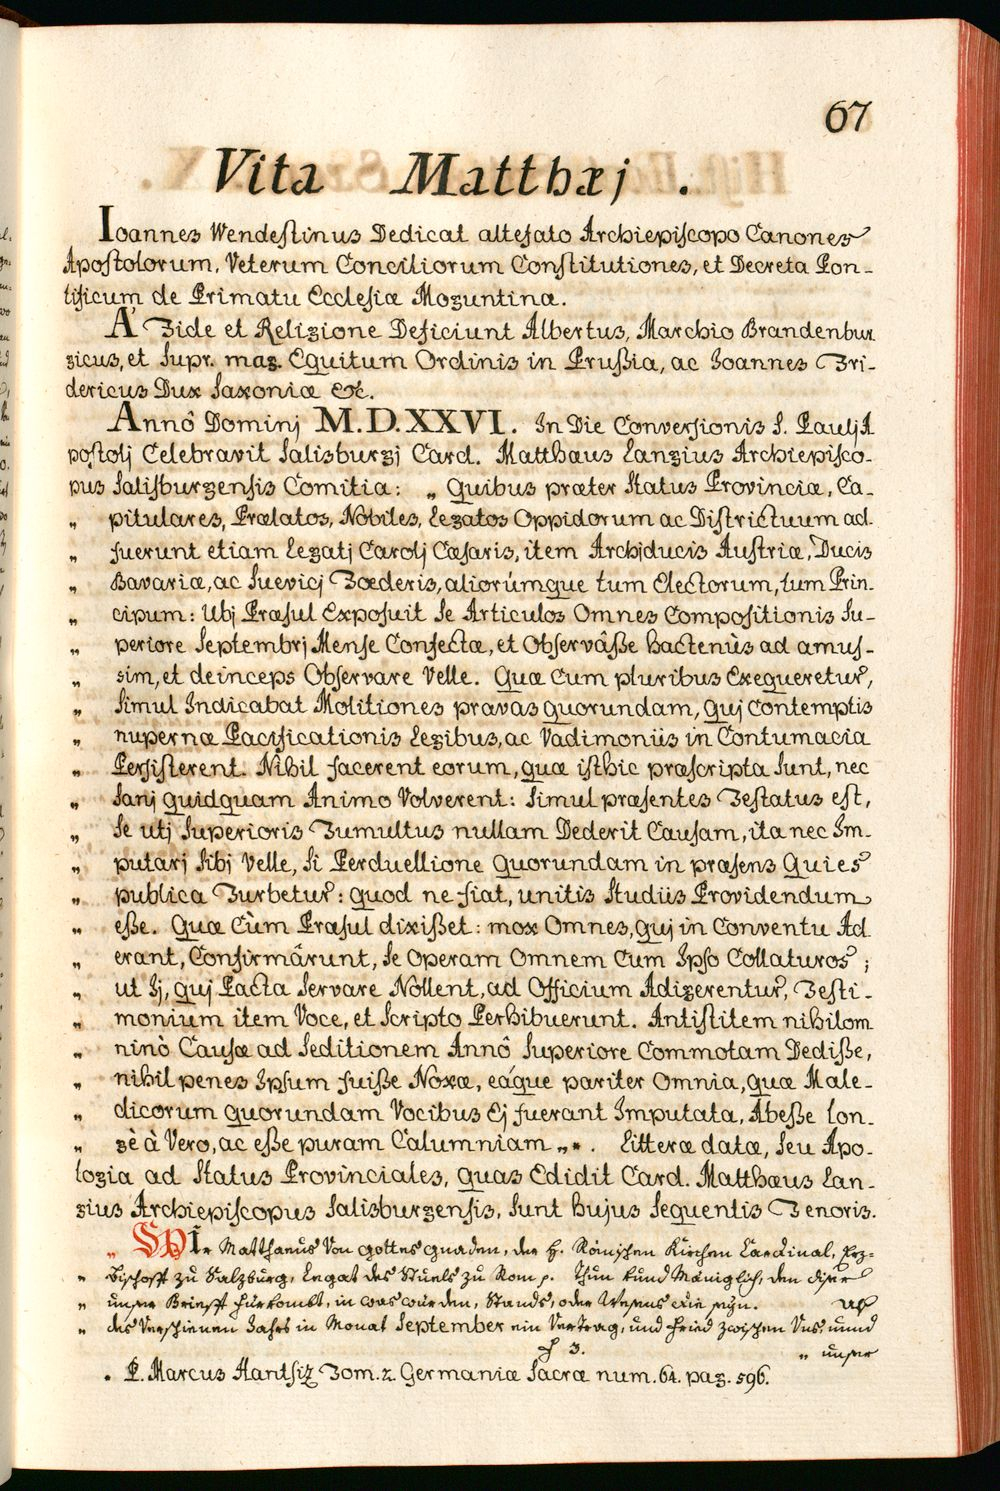 67
Vita Matthæj .
Ioannes Wendestinus Dedicat altefato Archiepiscopo Canones
Apostolorum, Veterum Conciliorum Constitutiones, et Decreta Pon-
tificum de Primatu Ecclesiæ Moguntinæ.
A' Fide et Religione Deficiunt Albertus, Marchio Brandenbur
gicus, et Supr. mag. Equitum Ordinis in Prußia, ac Joannes Fri-
dericus Dux Saxoniæ &c.
Annô Dominj M.D.XXVI. In Die Conversionis S. Paulj A
postolj Celebravit Salisburgj Card. Matthæus Langius Archiepisco-
pus Salisburgensis Comitia: „ Quibus præter Status Provinciæ, Ca-
„ pitulares, Prælatos, Nobiles, Legatos Oppidorum ac Districtuum ad-
„ fuerunt etiam Legatj Carolj Cæsaris, item Archjducis Austriæ, Ducis
„ Bavariæ, ac Suevicj Fœderis, aliorúmque tum Electorum, tum Prin-
„ cipum: Ubj Præsul Exposuit Se Articulos Omnes Compositionis Su-
„ periore Septembrj Mense Confectæ, et Observâße hactenùs ad amus-
„ sim, et deinceps Observare Velle. Quæ Cum pluribus Exequeretur,
„ Simul Indicabat Molitiones pravas quorundam, Quj Contemptis
„ nupernæ Pacificationis Legibus, ac Vadimoniis in Contumacia
„ Persisterent. Nihil facerent eorum, quæ isthic præscripta Sunt, nec
„ Sanj quidquam Animo Volverent: Simul præsentes Testatus est,
„ Se utj Superioris Tumultus nullam Dederit Causam, ita nec Im-
„ putarj Sibj Velle, Si Perduellione Quorundam in præsens Quies
„ publica Turbetur: quod ne fiat, unitis Studiis Providendum
„ eße. Quæ Cùm Præsul dixißet: mox Omnes, quj in Conventu Ad
„ erant, Confirmârunt, Se Operam Omnem Cum Ipso Collaturos ;
„ ut Ij, quj Pacta Servare Nollent, ad Officium Adigerentur, Testi-
„ monium item Voce, et Scripto Perhibuerunt. Antistitem nihilom
„ ninò Causæ ad Seditionem Annô Superiore Commotam Dediße,
„ nihil penes Ipsum fuiße Noxæ, eáque pariter Omnia, quæ Male-
„ dicorum quorundam Vocibus Ej fuerant Imputata, Abeße lon-
„ gè à Vero, ac eße puram Calumniam „*. Litteræ datæ, Seu Apo-
logia ad Status Provinciales, quas Edidit Card. Matthæus Lan-
gius Archiepiscopus Salisburgensis, Sunt hujus Sequentis Tenoris.
„ Wir Matthaeus Von Gottes Gnaden, der H. Römischen Kirchen Cardinal, Erz-
„ Bischoff zu Salzburg, Legat des Stuels zu Rom p. Thun kund Mäniglich, den diser
„ unser Brieff fürkombt, in was würden, Stands, oder Wesens die seyn. Als
„ des Verschienen Jahrs in Monat September ein Vertrag, und Fried zwischen Uns, unnd
3.
„ unser
. P. Marcus Hantsiz Tom. 2. Germaniæ Sacræ num. 64. pag. 596.